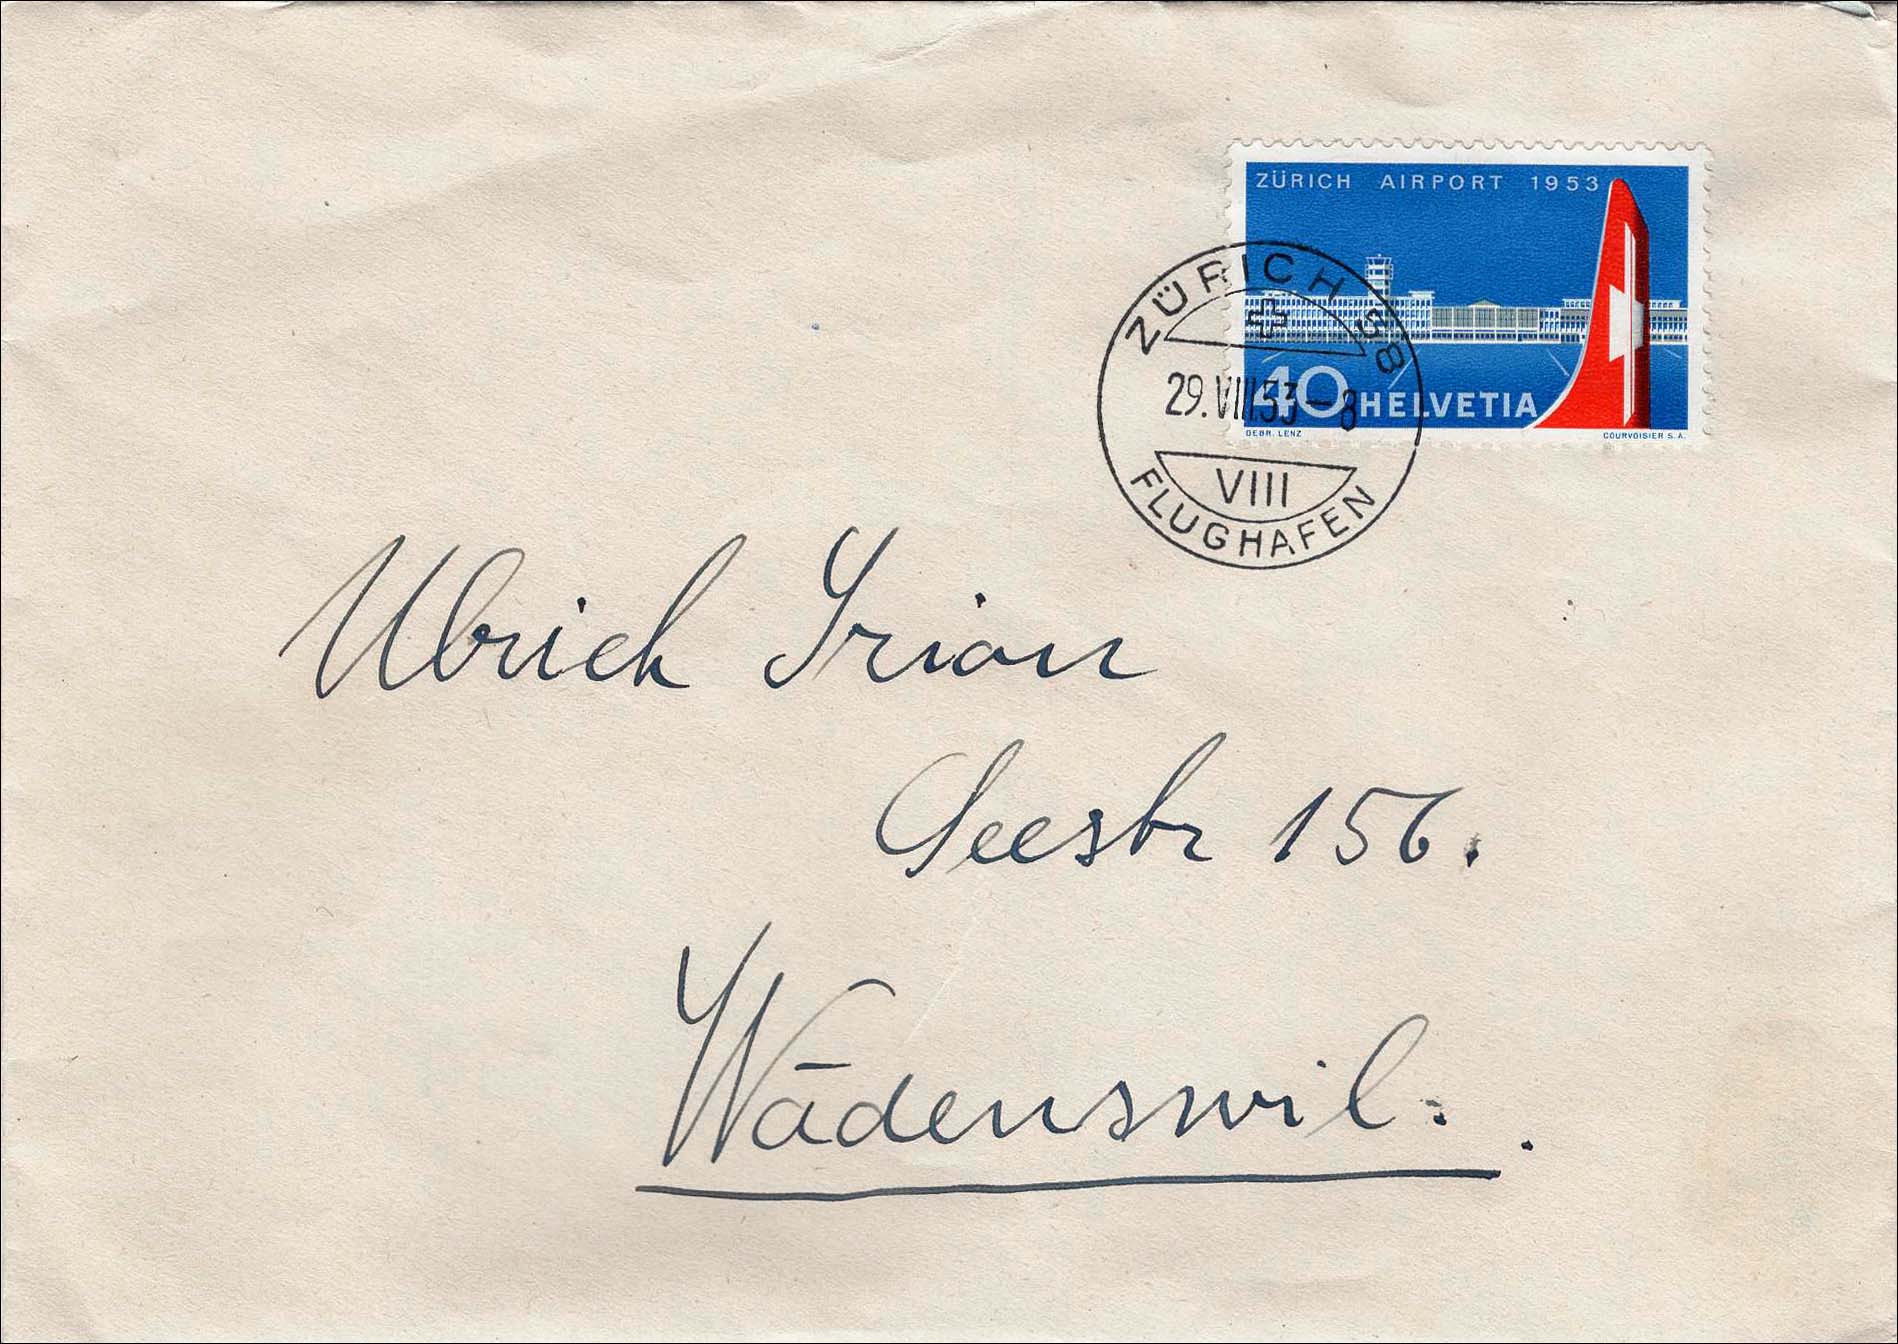 ZÜRICH AIRPORT 1953
40 HELVETIA
GEBR. LENZ
COURVOISIER S.A.
ZÜRICH 58
29.VIII.53-8
VIII
FLUGHAFEN
Ulrich Irion
Seestr 156.
Wädenswil.